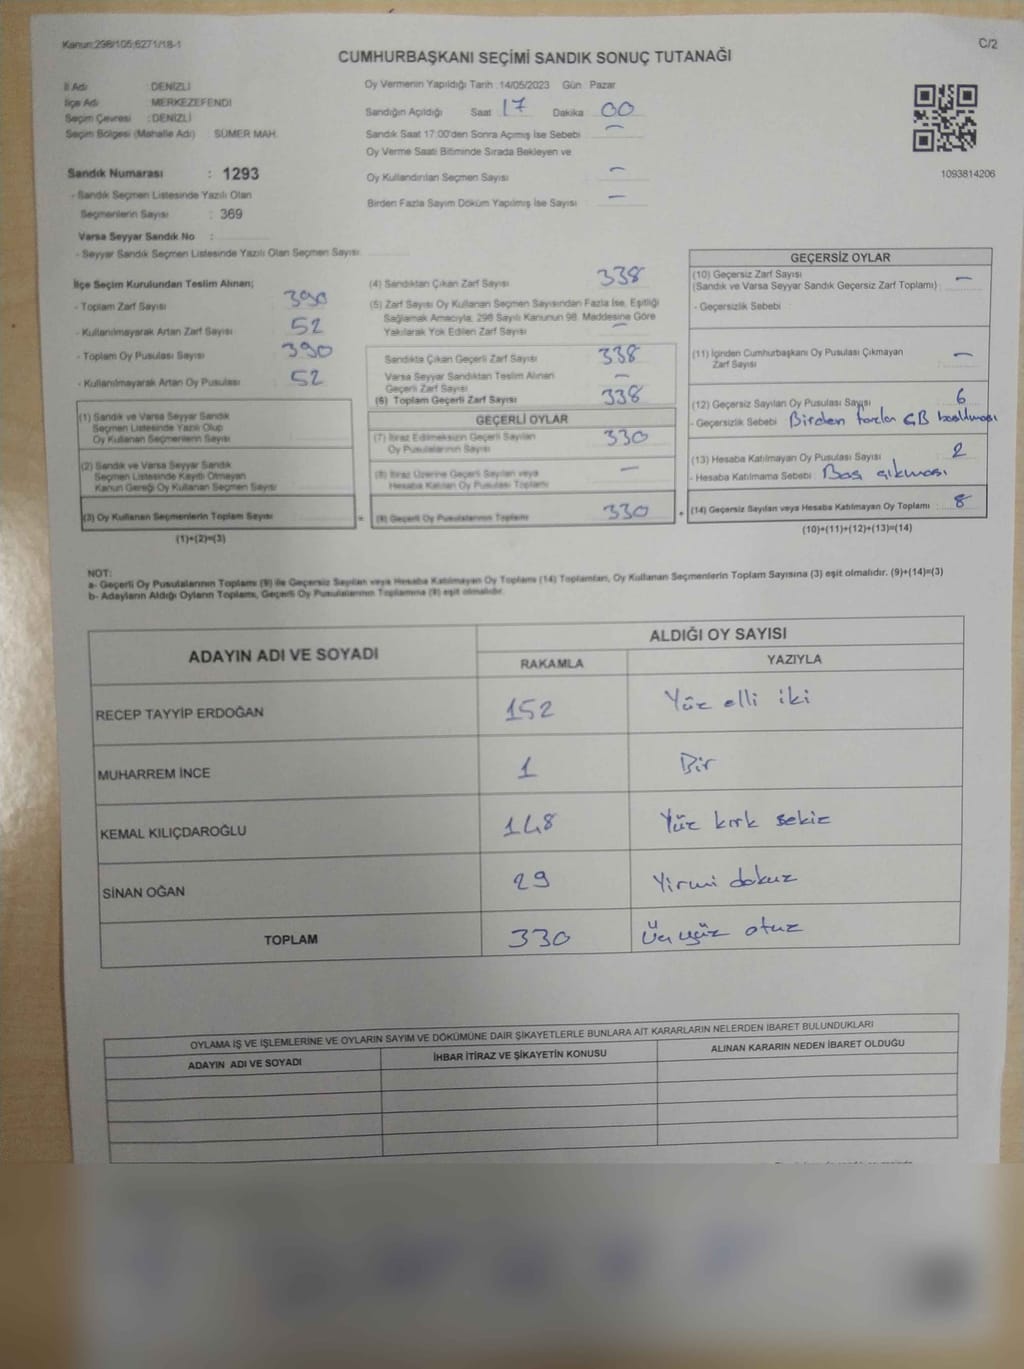 Kanun:298/105;6271/18-1
C/2
CUMHURBAŞKANI SEÇİMİ SANDIK SONUÇ TUTANAĞI
İl Adı : DENİZLİ
İlçe Adı : MERKEZEFENDİ
Seçim Çevresi : DENİZLİ
Seçim Bölgesi (Mahalle Adı) SÜMER MAH.
Sandık Numarası : 1293
- Sandık Seçmen Listesinde Yazılı Olan
Seçmenlerin Sayısı : 369
Varsa Seyyar Sandık No :
- Seyyar Sandık Seçmen Listesinde Yazılı Olan Seçmen Sayısı:
Oy Vermenin Yapıldığı Tarih :14/05/2023 Gün : Pazar
Sandığın Açıldığı Saat 17 Dakika 00
Sandık Saat 17:00'den Sonra Açımış İse Sebebi —
Oy Verme Saati Bitiminde Sırada Bekleyen ve
Oy Kullandırılan Seçmen Sayısı —
Birden Fazla Sayım Döküm Yapılmış İse Sayısı —
1093814206
İlçe Seçim Kurulundan Teslim Alınan;
- Toplam Zarf Sayısı : 390
- Kullanılmayarak Artan Zarf Sayısı : 52
- Toplam Oy Pusulası Sayısı : 390
- Kullanılmayarak Artan Oy Pusulası : 52
(1) Sandık ve Varsa Seyyar Sandık
Seçmen Listesinde Yazılı Olup
Oy Kullanan Seçmenlerin Sayısı
(2) Sandık ve Varsa Seyyar Sandık
Seçmen Listesinde Kayıtlı Olmayan
Kanun Gereği Oy Kullanan Seçmen Sayısı
(3) Oy Kullanan Seçmenlerin Toplam Sayısı
(1)+(2)=(3)
(4) Sandıktan Çıkan Zarf Sayısı 338
(5) Zarf Sayısı Oy Kullanan Seçmen Sayısından Fazla İse, Eşitliği
Sağlamak Amacıyla; 298 Sayılı Kanunun 98. Maddesine Göre
Yakılarak Yok Edilen Zarf Sayısı —
Sandıkta Çıkan Geçerli Zarf Sayısı 338
Varsa Seyyar Sandıktan Teslim Alınan
Geçerli Zarf Sayısı —
(6) Toplam Geçerli Zarf Sayısı 338
GEÇERLİ OYLAR
(7) İtiraz Edilmeksizin Geçerli Sayılan
Oy Pusulalarının Sayısı 330
(8) İtiraz Üzerine Geçerli Sayılan veya
Hesaba Katılan Oy Pusulası Toplamı —
= (9) Geçerli Oy Pusulalarının Toplamı 330
GEÇERSİZ OYLAR
(10) Geçersiz Zarf Sayısı —
(Sandık ve Varsa Seyyar Sandık Geçersiz Zarf Toplamı) :
- Geçersizlik Sebebi :
(11) İçinden Cumhurbaşkanı Oy Pusulası Çıkmayan
Zarf Sayısı —
(12) Geçersiz Sayılan Oy Pusulası Sayısı 6
- Geçersizlik Sebebi : Birden fazla basılması
(13) Hesaba Katılmayan Oy Pusulası Sayısı 2
- Hesaba Katılmama Sebebi : Boş çıkması
+ (14) Geçersiz Sayılan veya Hesaba Katılmayan Oy Toplamı : 8
(10)+(11)+(12)+(13)=(14)
NOT:
a- Geçerli Oy Pusulalarının Toplamı (9) ile Geçersiz Sayılan veya Hesaba Katılmayan Oy Toplamı (14) Toplamları, Oy Kullanan Seçmenlerin Toplam Sayısına (3) eşit olmalıdır. (9)+(14)=(3)
b- Adayların Aldığı Oyların Toplamı, Geçerli Oy Pusulalarının Toplamına (9) eşit olmalıdır.
ADAYIN ADI VE SOYADI
ALDIĞI OY SAYISI
RAKAMLA YAZIYLA
RECEP TAYYİP ERDOĞAN 152 Yüz elli iki
MUHARREM İNCE 1 Bir
KEMAL KILIÇDAROĞLU 148 Yüz kırk sekiz
SİNAN OĞAN 29 Yirmi dokuz
TOPLAM 330 Üç yüz otuz
OYLAMA İŞ VE İŞLEMLERİNE VE OYLARIN SAYIM VE DÖKÜMÜNE DAİR ŞİKAYETLERLE BUNLARA AİT KARARLARIN NELERDEN İBARET BULUNDUKLARI
ADAYIN ADI VE SOYADI İHBAR İTİRAZ VE ŞİKAYETİN KONUSU ALINAN KARARIN NEDEN İBARET OLDUĞU